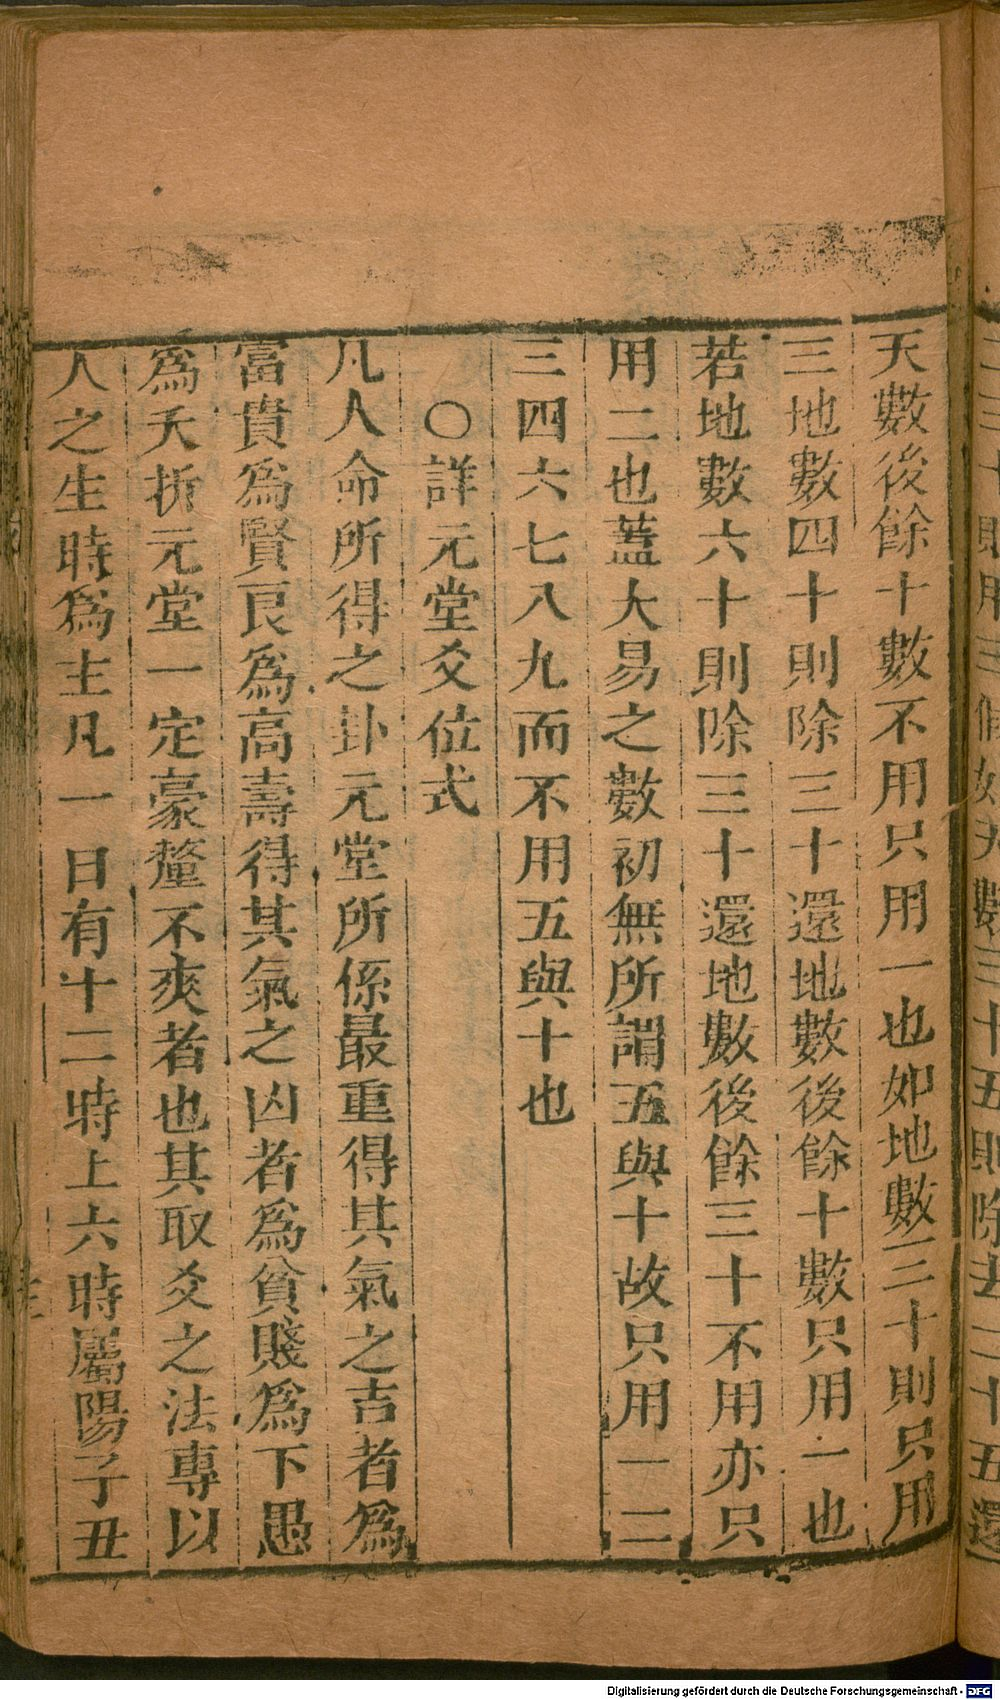 天數後餘十數不用只用一也如地數三十則只用
三地數四十則除三十還地數後餘十數只用一也
若地數六十則除三十還地數後餘三十不用亦只
用二也蓋大易之數初無所謂五與十故只用一二
三四六七八九而不用五與十也
○詳元堂爻位式
凡人命所得之卦元堂所係最重得其氣之吉者爲
富貴爲賢良爲高壽得其氣之凶者爲貧賤爲下愚
爲夭折元堂一定豪釐不爽者也其取爻之法專以
人之生時爲主凡一日有十二時上六時屬陽子丑
Digitalisierung gefördert durch die Deutsche Forschungsgemeinschaft - DFG